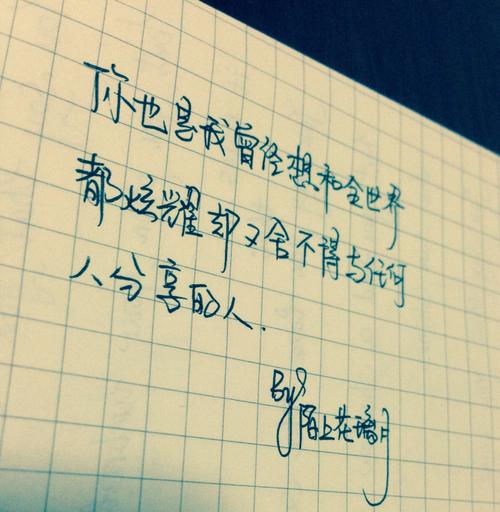 你也是我曾经想和全世界
都炫耀却又舍不得与任何
人分享的人.
By:
陌上花璃月